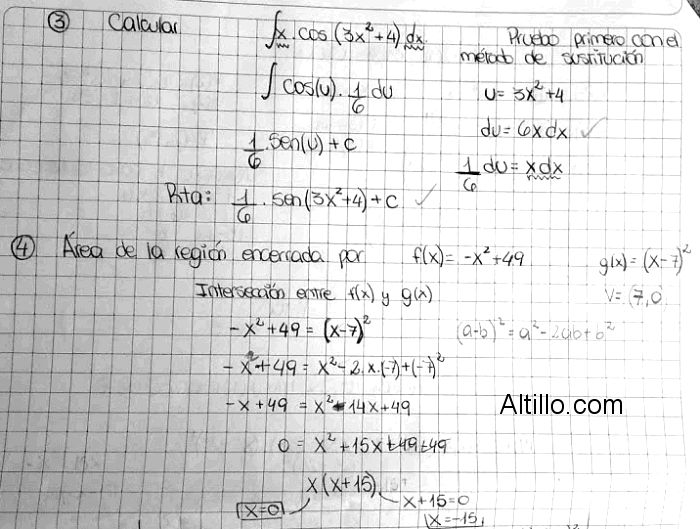 ③ Calcular ∫x.cos(3x²+4)dx Pruebo primero con el
método de sustitución
∫cos(u).1/6 du u=3x²+4
du=6xdx ✓
1/6.sen(u)+c
1/6 du=xdx
Rta: 1/6.sen(3x²+4)+c ✓
④ Área de la región encerrada por f(x)=-x²+49 g(x)=(x-7)²
Intersección entre f(x) y g(x) V=(7,0
-x²+49=(x-7)² (a-b)²=a²-2ab+b²
-x²+49=x²-2.x.(-7)+(-7)²
-x+49=x²-14x+49
Altillo.com
0=x²+15x+49-49
x(x+15)
x=0 x+15=0
x=-15